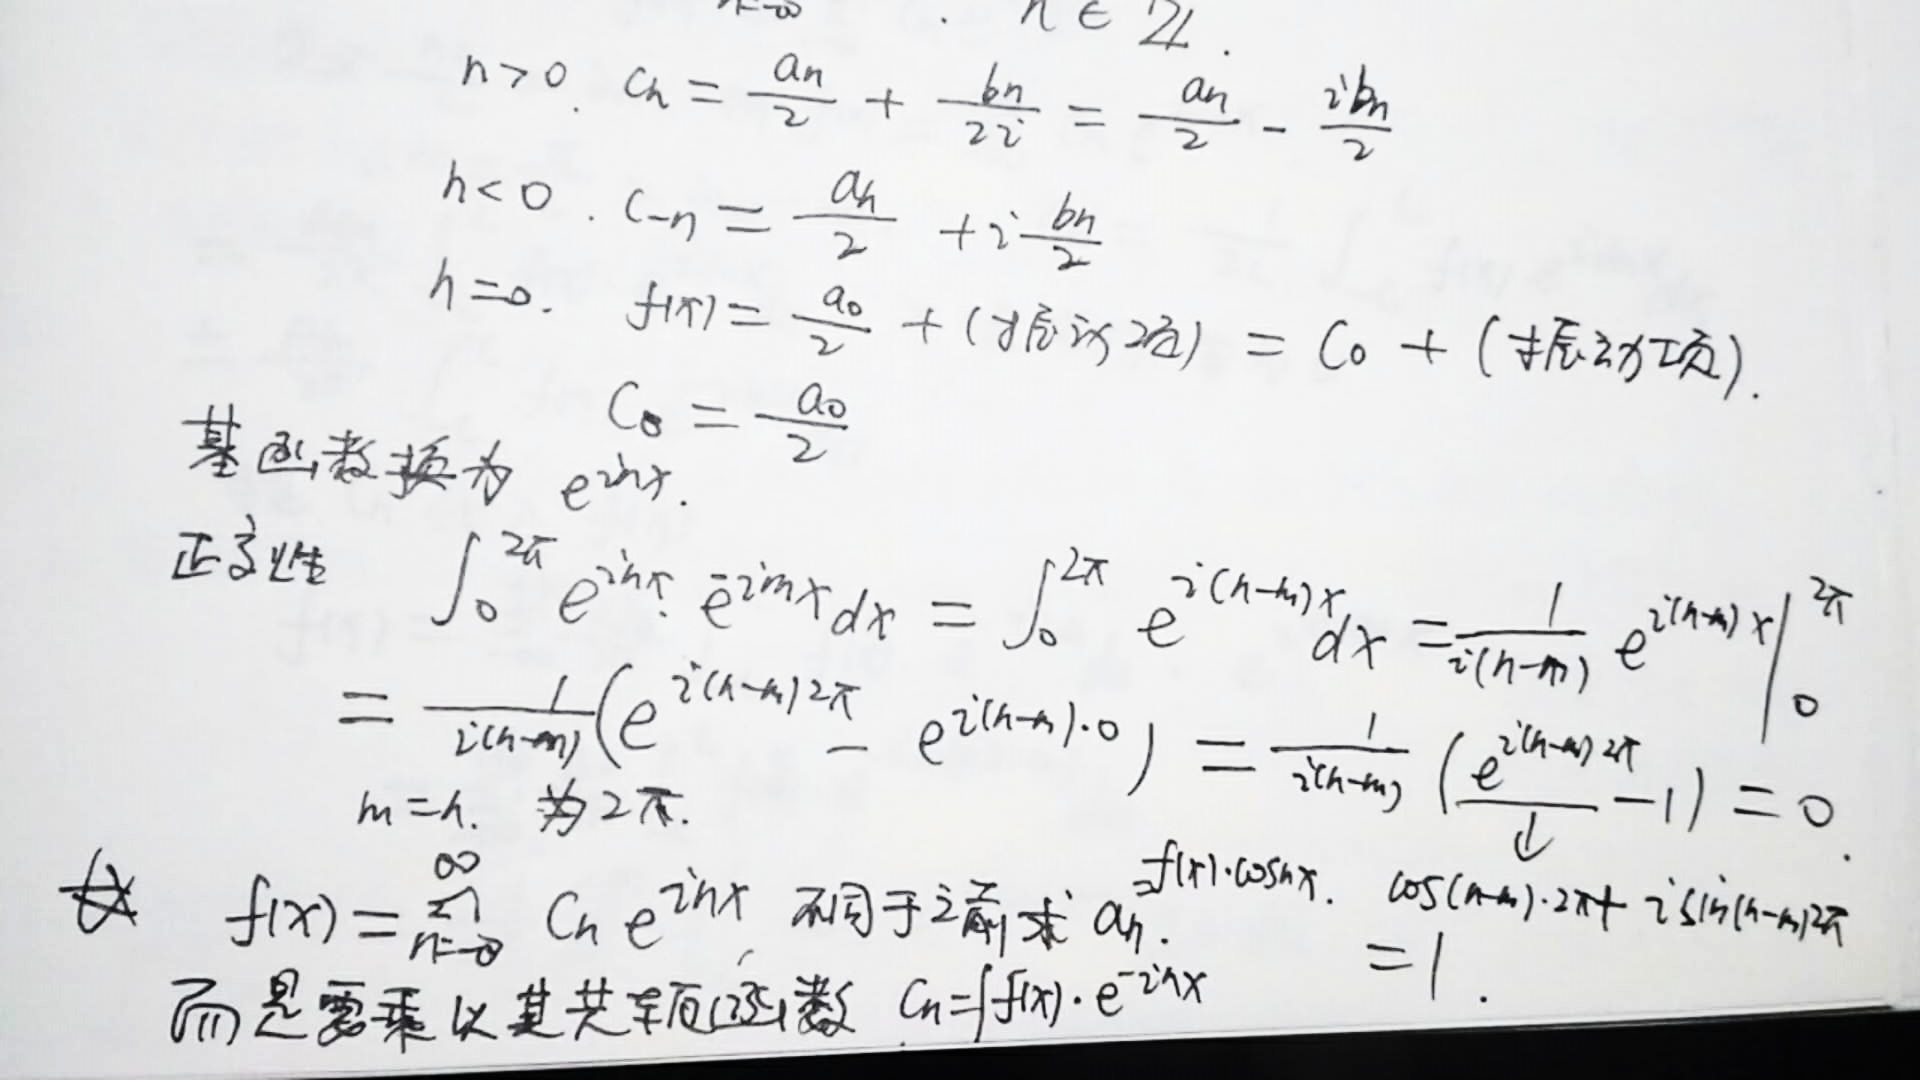 n=-∞ . n ∈ ℤ.
n>0. Cn = an/2 + bn/2i = an/2 - ibn/2
n<0. C-n = an/2 + i bn/2
n=0. f(x) = a0/2 + (振动项) = C0 + (振动项).
C0 = a0/2
基函数换为 e^{inx}.
正交性 ∫_0^{2π} e^{inx} · e^{-imx} dx = ∫_0^{2π} e^{i(n-m)x} dx = 1/i(n-m) e^{i(n-m)x} |_0^{2π}
= 1/i(n-m) (e^{i(n-m)2π} - e^{i(n-m)·0}) = 1/i(n-m) (e^{i(n-m)2π} - 1) = 0.
m=n. 为2π. ↓
☆ f(x) = ∑_{n=-∞}^{∞} Cn e^{inx}, 不同于之前求 an. =f(x)·cosnx. cos(n-m)·2π + i sin(n-m)2π
= 1.
而是需乘以其共轭函数 Cn = ∫f(x)·e^{-inx}